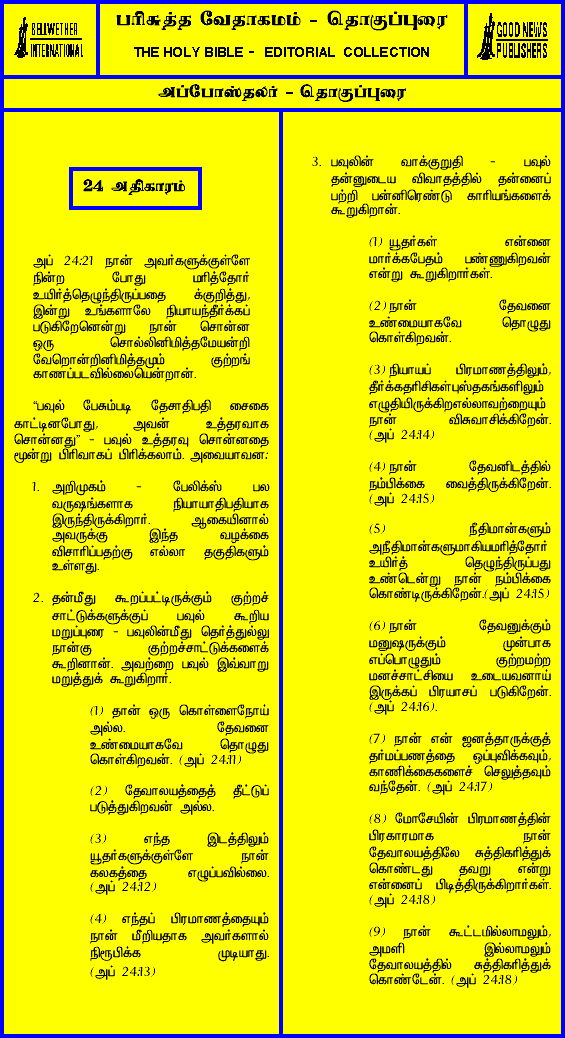 BELLWETHER
INTERNATIONAL
பரிசுத்த வேதாகமம் - தொகுப்புரை
THE HOLY BIBLE - EDITORIAL COLLECTION
GOOD NEWS
PUBLISHERS
அப்போஸ்தலர் - தொகுப்புரை
24 அதிகாரம்
அப் 24:21 நான் அவர்களுக்குள்ளே
நின்ற போது மரித்தோர்
உயிர்த்தெழுந்திருப்பதை க்குறித்து,
இன்று உங்களாலே நியாயந்தீர்க்கப்
படுகிறேனென்று நான் சொன்ன
ஒரு சொல்லினிமித்தமேயன்றி
வேறொன்றினிமித்தமும் குற்றங்
காணப்படவில்லையென்றான்.
“பவுல் பேசும்படி தேசாதிபதி சைகை
காட்டினபோது, அவன் உத்தரவாக
சொன்னது” - பவுல் உத்தரவு சொன்னதை
மூன்று பிரிவாகப் பிரிக்கலாம். அவையாவன:
1. அறிமுகம் - பேலிக்ஸ் பல
வருஷங்களாக நியாயாதிபதியாக
இருந்திருக்கிறார். ஆகையினால்
அவருக்கு இந்த வழக்கை
விசாரிப்பதற்கு எல்லா தகுதிகளும்
உள்ளது.
2. தன்மீது கூறப்பட்டிருக்கும் குற்றச்
சாட்டுக்களுக்குப் பவுல் கூறிய
மறுப்புரை - பவுலின்மீது தெர்த்துல்லு
நான்கு குற்றச்சாட்டுக்களைக்
கூறினான். அவற்றை பவுல் இவ்வாறு
மறுத்துக் கூறுகிறார்.
(1) தான் ஒரு கொள்ளைநோய்
அல்ல. தேவனை
உண்மையாகவே தொழுது
கொள்கிறவன். (அப் 24:11)
(2) தேவாலயத்தைத் தீட்டுப்
படுத்துகிறவன் அல்ல.
(3) எந்த இடத்திலும்
யூதர்களுக்குள்ளே நான்
கலகத்தை எழுப்பவில்லை.
(அப் 24:12)
(4) எந்தப் பிரமாணத்தையும்
நான் மீறியதாக அவர்களால்
நிரூபிக்க முடியாது.
(அப் 24:13)
3. பவுலின் வாக்குறுதி - பவுல்
தன்னுடைய விவாதத்தில் தன்னைப்
பற்றி பன்னிரெண்டு காரியங்களைக்
கூறுகிறான்.
(1) யூதர்கள் என்னை
மார்க்கபேதம் பண்ணுகிறவன்
என்று கூறுகிறார்கள்.
(2) நான் தேவனை
உண்மையாகவே தொழுது
கொள்கிறவன்.
(3) நியாயப் பிரமாணத்திலும்,
தீர்க்கதரிசிகள்புஸ்தகங்களிலும்
எழுதியிருக்கிறஎல்லாவற்றையும்
நான் விசுவாசிக்கிறேன்.
(அப் 24:14)
(4) நான் தேவனிடத்தில்
நம்பிக்கை வைத்திருக்கிறேன்.
(அப் 24:15)
(5) நீதிமான்களும்
அநீதிமான்களுமாகியமரித்தோர்
உயிர்த் தெழுந்திருப்பது
உண்டென்று நான் நம்பிக்கை
கொண்டிருக்கிறேன்.(அப் 24:15)
(6) நான் தேவனுக்கும்
மனுஷருக்கும் முன்பாக
எப்பொழுதும் குற்றமற்ற
மனச்சாட்சியை உடையவனாய்
இருக்கப் பிரயாசப் படுகிறேன்.
(அப் 24:16).
(7) நான் என் ஜனத்தாருக்குத்
தர்மப்பணத்தை ஒப்புவிக்கவும்,
காணிக்கைகளைச் செலுத்தவும்
வந்தேன். (அப் 24:17)
(8) மோசேயின் பிரமாணத்தின்
பிரகாரமாக நான்
தேவாலயத்திலே சுத்திகரித்துக்
கொண்டது தவறு என்று
என்னைப் பிடித்திருக்கிறார்கள்.
(அப் 24:18)
(9) நான் கூட்டமில்லாமலும்,
அமளி இல்லாமலும்
தேவாலயத்தில் சுத்திகரித்துக்
கொண்டேன். (அப் 24:18)